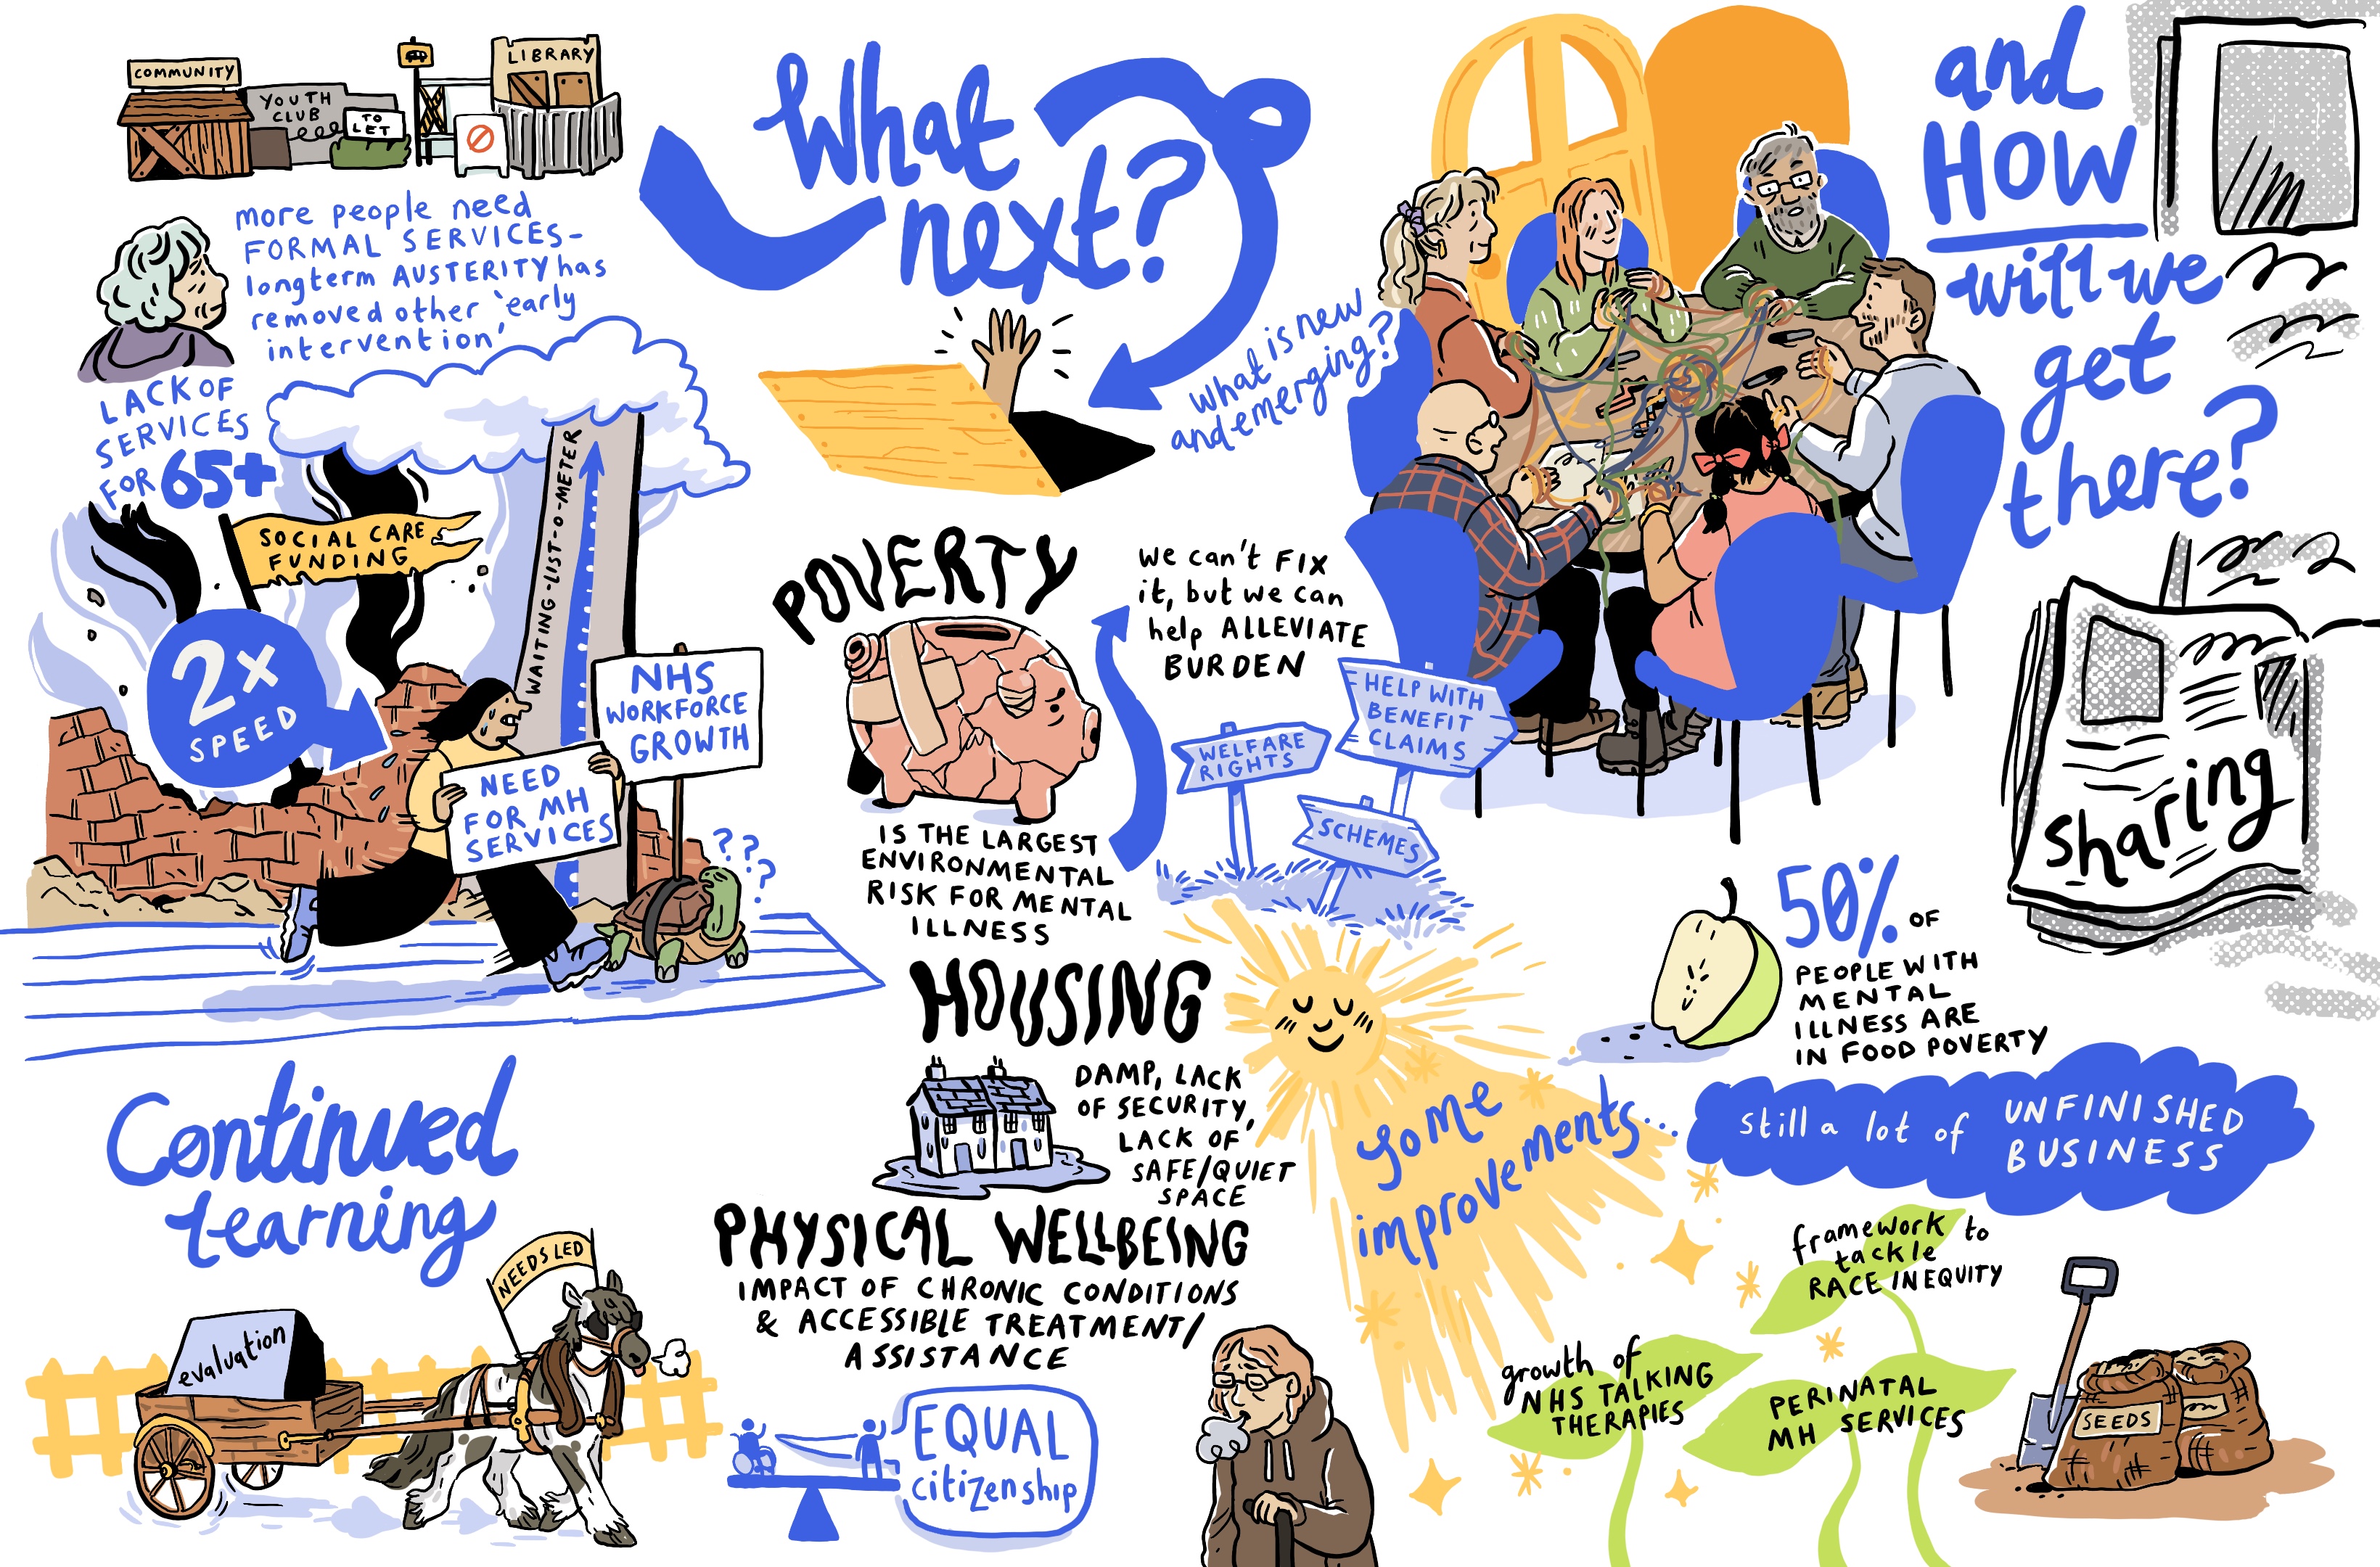 COMMUNITY
YOUTH
CLUB
TO
LET
LIBRARY
more people need
FORMAL SERVICES-
longterm AUSTERITY has
removed other 'early
intervention'
LACK OF
SERVICES
FOR 65+
SOCIAL CARE
FUNDING
2x
SPEED
WAITING-LIST-O-METER
NHS
WORKFORCE
GROWTH
NEED
FOR MH
SERVICES
???
What
next?
What is new
and emerging?
and
HOW
will we
get
there?
POVERTY
IS THE LARGEST
ENVIRONMENTAL
RISK FOR MENTAL
ILLNESS
We can't FIX
it, but we can
help ALLEVIATE
BURDEN
WELFARE
RIGHTS
HELP WITH
BENEFIT
CLAIMS
SCHEMES
Sharing
50% OF
PEOPLE WITH
MENTAL
ILLNESS ARE
IN FOOD POVERTY
HOUSING
DAMP, LACK
OF SECURITY,
LACK OF
SAFE/QUIET
SPACE
PHYSICAL WELLBEING
IMPACT OF CHRONIC CONDITIONS
& ACCESSIBLE TREATMENT/
ASSISTANCE
EQUAL
citizenship
Continued
learning
NEEDS LED
evaluation
Some
improvements...
still a lot of UNFINISHED
BUSINESS
framework to
tackle
RACE INEQUITY
growth of
NHS TALKING
THERAPIES
PERINATAL
MH SERVICES
SEEDS